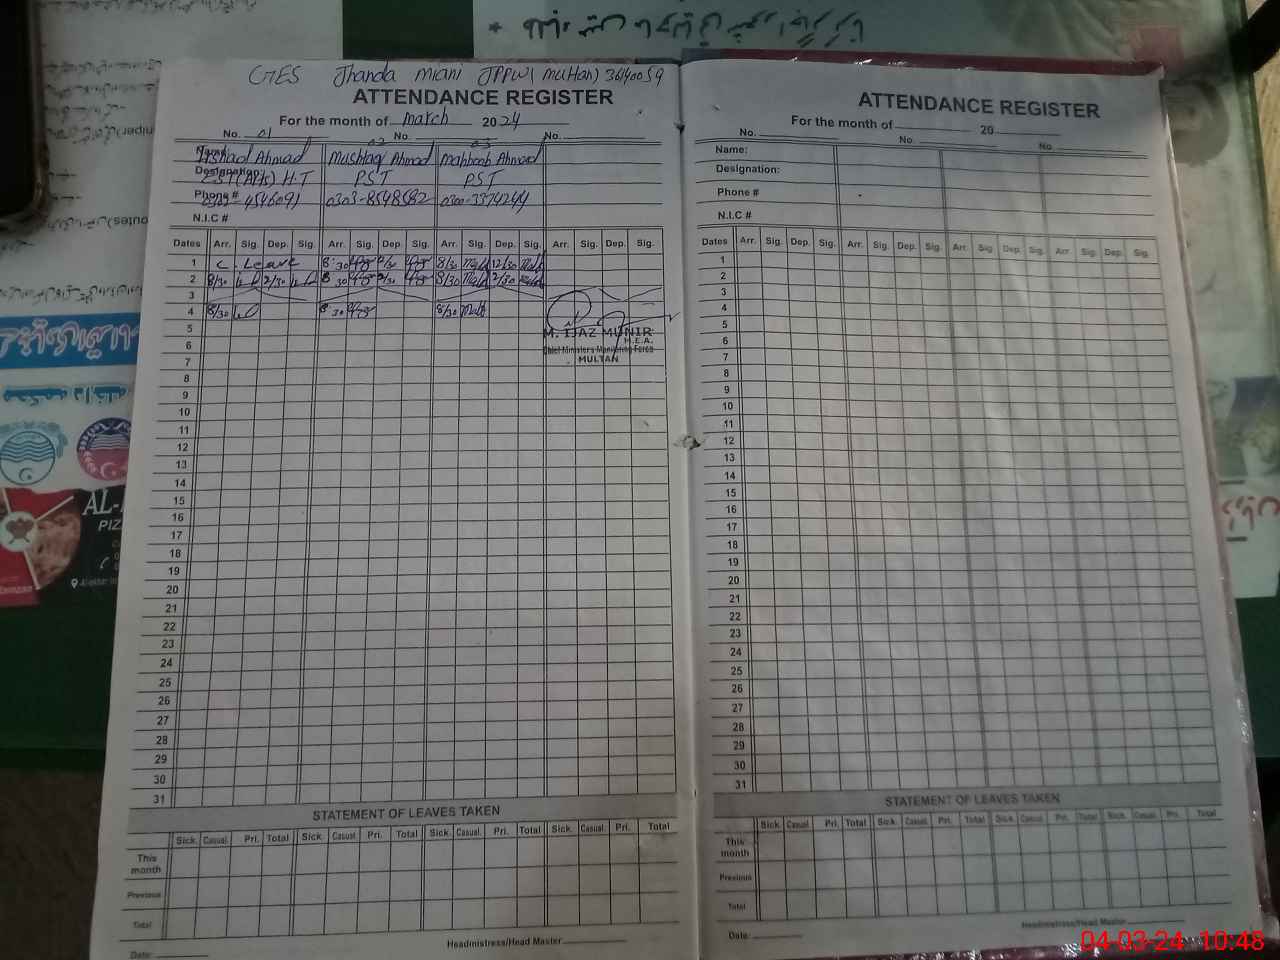 GES Jhanda Miani JPPW( Multan) 36140059
ATTENDANCE REGISTER
For the month of March 2024
No. 01 No. 02 No. 03
Name: Irshad Ahmad Mushtaq Ahmad Mahboob Ahmad
Designation: EST(Arb) H.T PST PST
Phone # 4546091 0303-8548582 0300-3374244
N.I.C #
Dates Arr. Sig. Dep. Sig. Arr. Sig. Dep. Sig. Arr. Sig. Dep. Sig. Arr. Sig. Dep. Sig.
1 C. Leave 8:30 2/30 8/30 12/30
2 8/30 2/30 8 30 2/30 8/30 2/30
3
4 8/30 8 30 8/30
M. IJAZ MUNIR
M.E.A.
Chief Minister's Monitoring Force
MULTAN
5
6
7
8
9
10
11
12
13
14
15
16
17
18
19
20
21
22
23
24
25
26
27
28
29
30
31
STATEMENT OF LEAVES TAKEN
Sick. Casual. Pri. Total Sick. Casual. Pri. Total Sick. Casual. Pri. Total Sick. Casual. Pri. Total
This month
Previous
Total
Headinistress/Head Master
Date:
ATTENDANCE REGISTER
For the month of 20
No. No. No.
Name:
Designation:
Phone #
N.I.C #
Dates Arr. Sig. Dep. Sig. Arr. Sig. Dep. Sig. Arr. Sig. Dep. Sig. Arr. Sig. Dep. Sig.
1
2
3
4
5
6
7
8
9
10
11
12
13
14
15
16
17
18
19
20
21
22
23
24
25
26
27
28
29
30
31
STATEMENT OF LEAVES TAKEN
Sick. Casual. Pri. Total Sick. Casual. Pri. Total Sick. Casual. Pri. Total Sick. Casual. Pri. Total
This month
Previous
Total
Headinistress/Head Master
Date:
AL-
PIZ
04-03-24 10:48